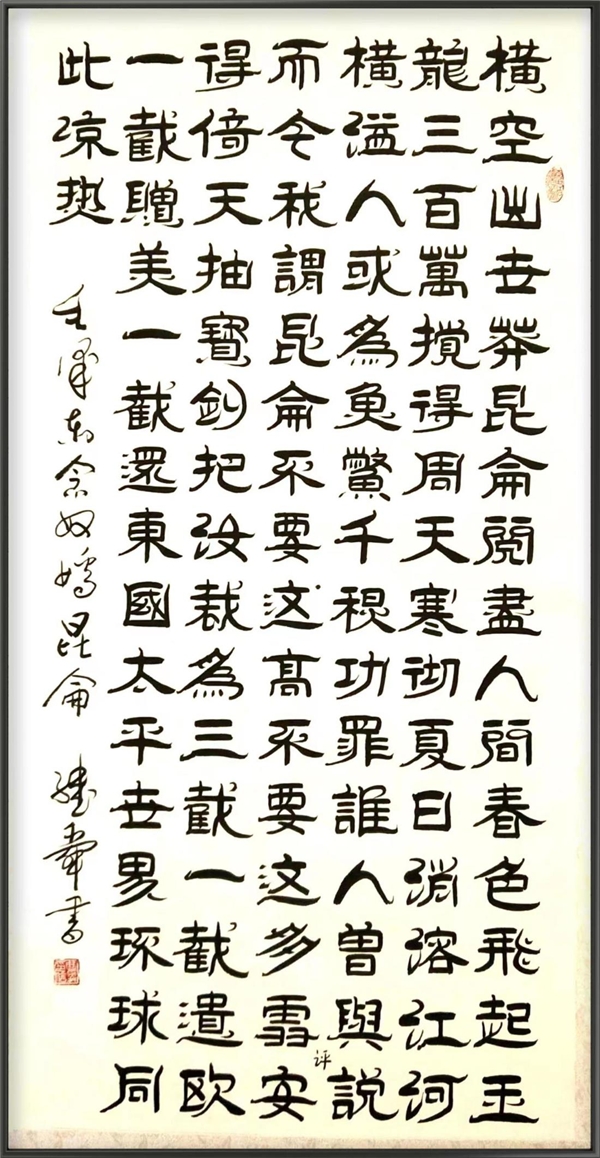 橫空出世莽昆侖閱盡人間春色飛起玉
龍三百萬攪得周天寒彻夏日消溶江河
橫溢人或為魚鱉千秋功罪誰人曾與說
评
而今我謂昆侖不要这高不要这多雪安
得倚天抽寶劍把汝裁為三截一截遺欧
一截贈美一截還東國太平世界环球同
此凉热
毛澤东念奴嬌昆侖
書